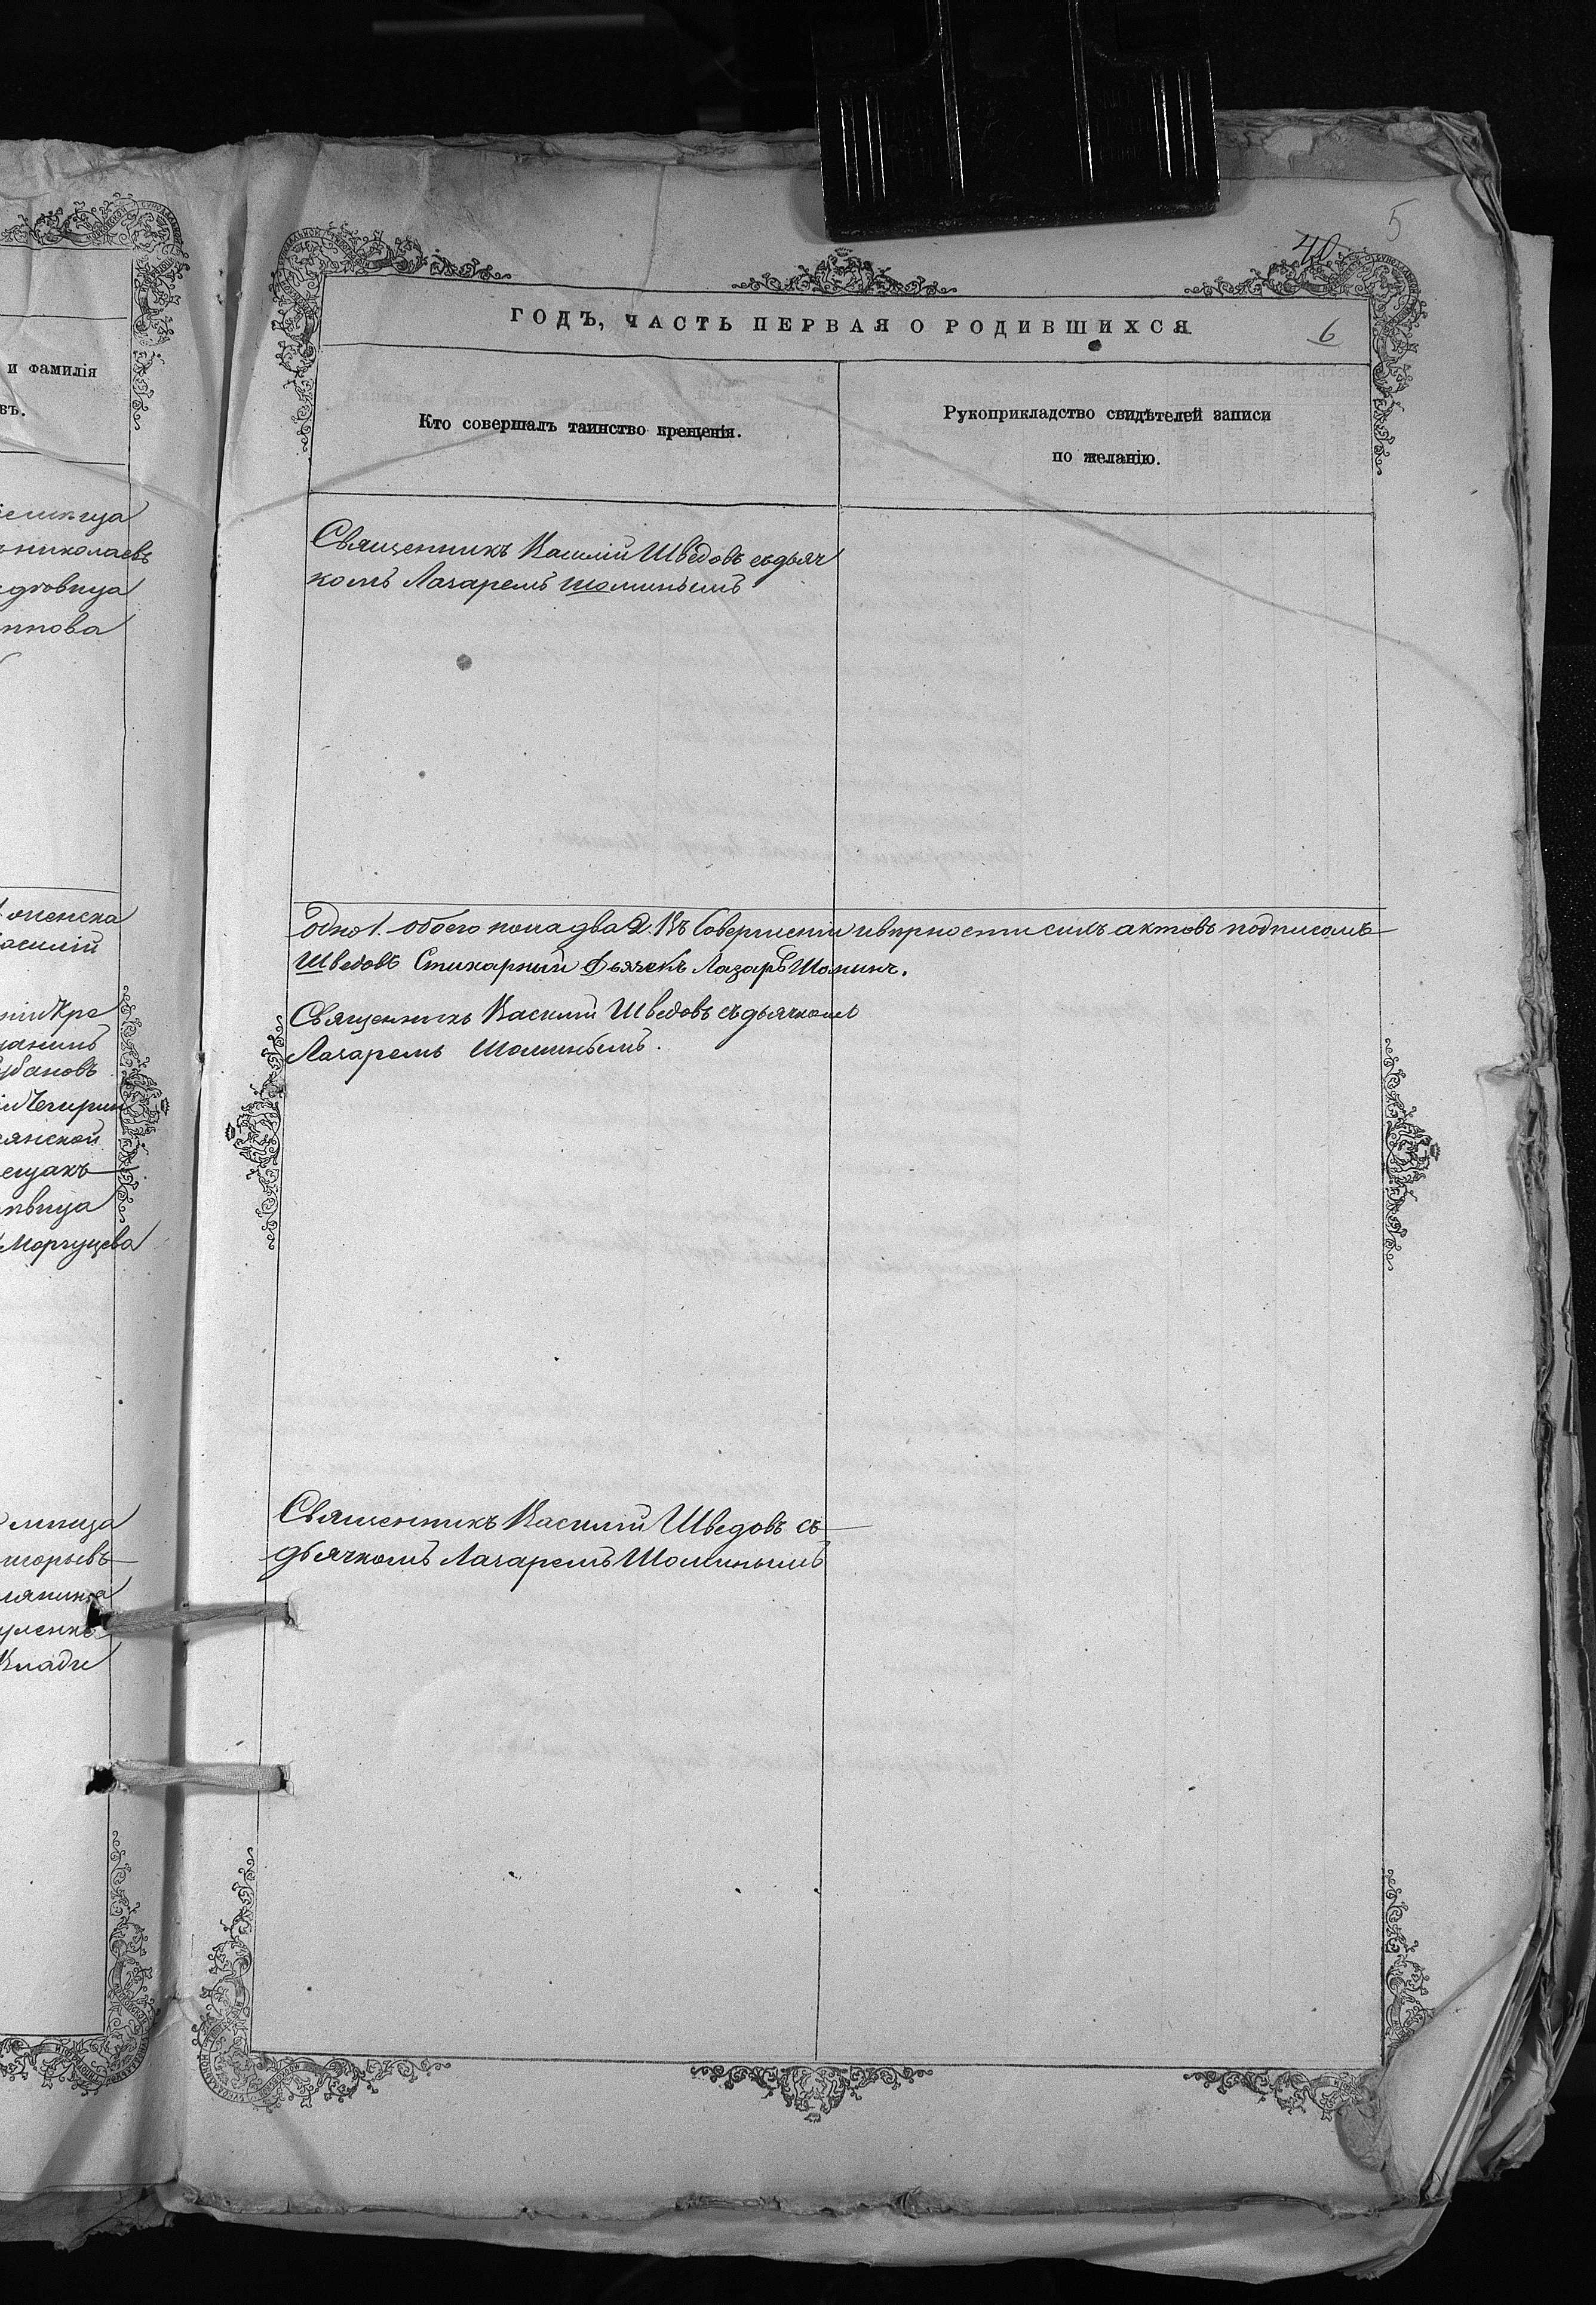 и фамилія
въ.
николаевъ
ннова
асилій
рбановъ
янской
Моргуцева
игорьевъ
5
40
ГОДЪ, ЧАСТЬ ПЕРВАЯ О РОДИВШИХСЯ
6
Кто совершалъ таинство крещенія.
Рукоприкладство свидѣтелей записи
по желанію.
Священникъ Василій Шведовъ съдьяч
комъ Лазаремъ Шоминымъ
одно 1. обоего пола два 2. Въ Совершеніи ивѣрности сихъ актовъ подписомъ
Шведовъ Стихарный Дьячекъ Лазарь Шоминъ.
Священникъ Василій Шведовъ съдьячкомъ
Лазаремъ Шоминымъ.
Священникъ Василій Шведовъ съ
дьячкомъ Лазаремъ Шоминымъ